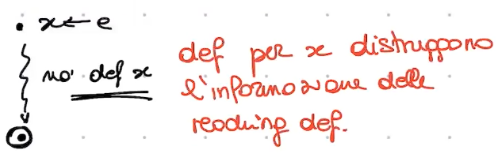 x ← e
no' def x
def per x distruggono
l'informazione delle
reaching def.